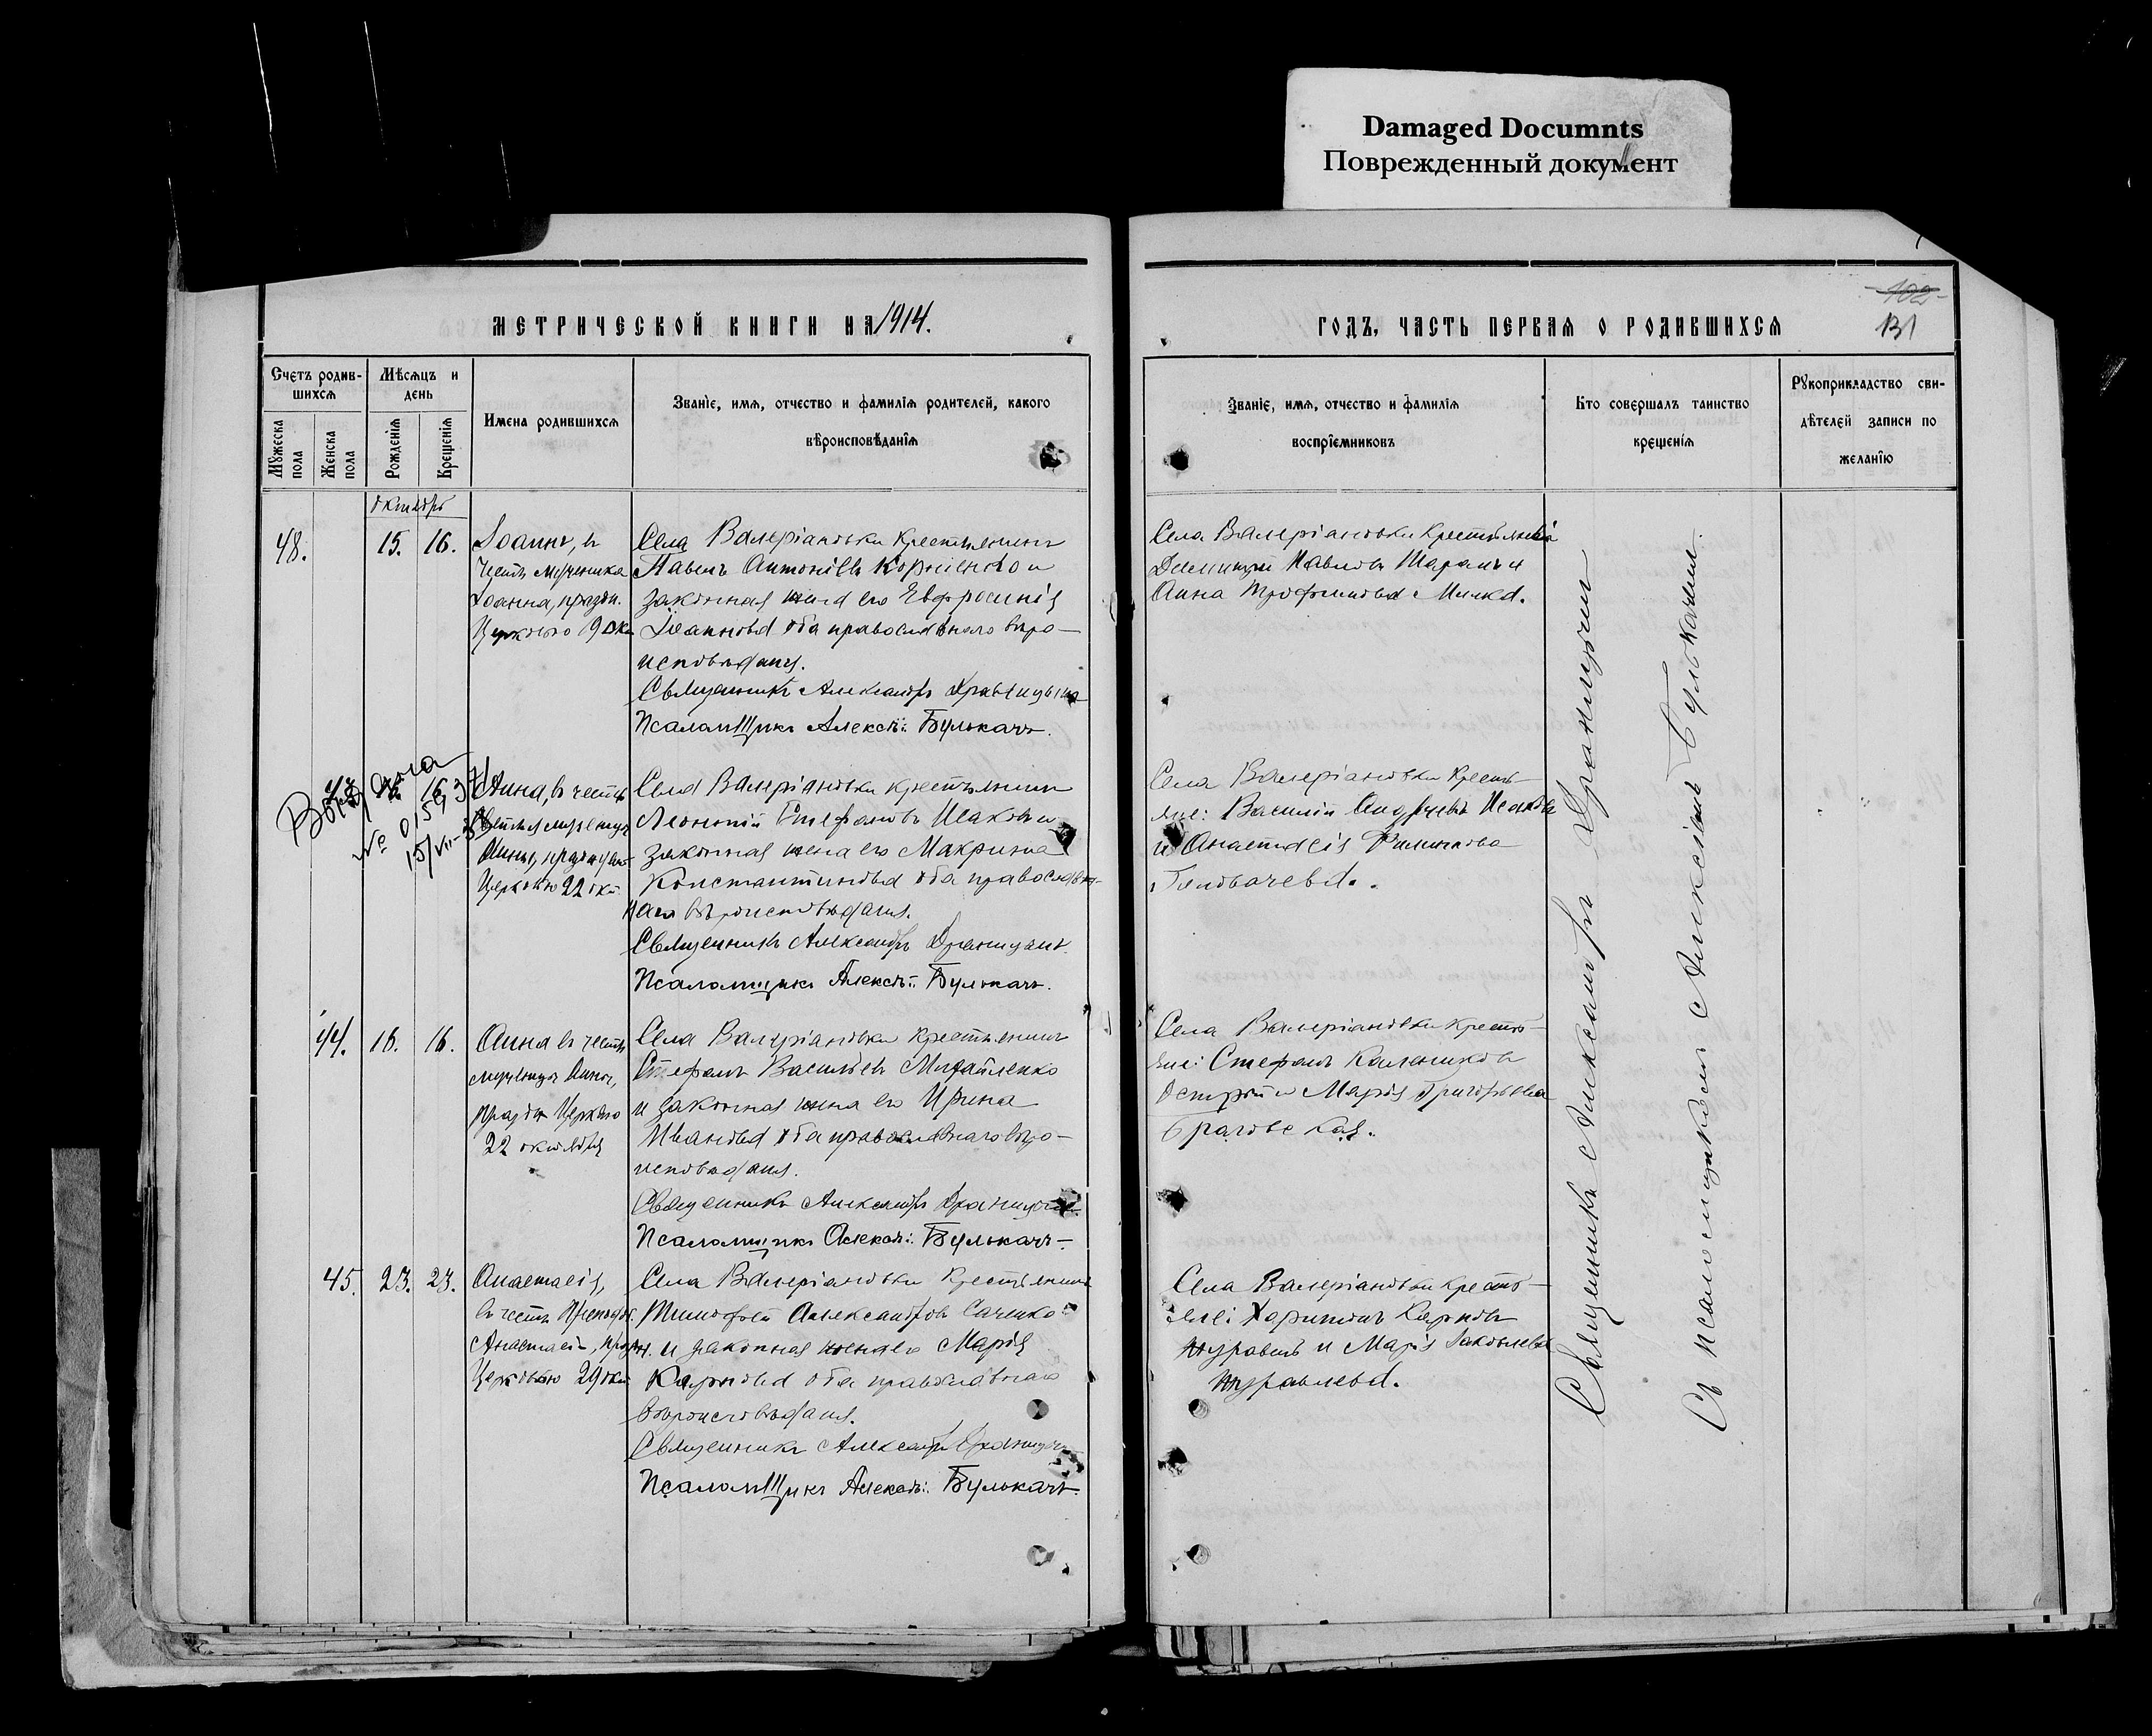 Damaged Documnts
Поврежденный документ
МЕТРИЧЕСКОЙ КНИГИ НА 1914.
Счетъ родив-
шихся
Мѣсяцъ и
день
Мужеска
пола
Женска
пола
Рожденія
Крещенія
Имена родившихся
Званіе, имя, отчество и фамилія родителей, какого
вѣроисповѣданія
октябрь
48.
15. 16.
Іоаннъ, въ
честь мученика
Іоанна, праздн.
Церковью 19 Окт
Села Валеріановки крестьянинъ
Павелъ Антоніевъ Корніенко и
законная жена его Евфросинія
Іоаннова оба православнаго вѣро-
исповѣданія.
Священникъ Александръ
Псаломщикъ Алексѣй Булькачъ.
№ 015937
15/VII-
16
Анна, въ честь
Анны, празднуем.
Церковью 22 окт
Села Валеріановки крестьянинъ
Леонтій Стефановъ Исаковъ и
законная жена его Макрина
Константинова оба православ-
наго вѣроисповѣданія.
Священникъ Александръ
Псаломщикъ Алексѣй Булькачъ.
44. 16. 16.
Анна въ честь
мученицы Анны,
праздн Церковью
22 октября
Села Валеріановки крестьянинъ
Стефанъ Васильевъ Михайленко
и законная жена его Ирина
Иванова оба православнаго вѣро-
исповѣданія.
Священникъ Александръ
Псаломщикъ Алексѣй Булькачъ.
45. 23. 23.
Анастасія,
въ честь Преподоб.
Анастасіи, праздн.
Церковью 29 окт
Села Валеріановки крестьянинъ
Тимофей Александровъ Саченко
и законная жена его Марія
Карпова оба православнаго
вѣроисповѣданія.
Священникъ Александръ
Псаломщикъ Алексѣй Булькачъ.
102
131
ГОДЪ, ЧАСТЬ ПЕРВАЯ О РОДИВШИХСЯ
Званіе, имя, отчество и фамилія
воспріемниковъ
Кто совершалъ таинство
крещенія
Рукоприкладство сви-
дѣтелей записи по
желанію
Села Валеріановки крестьяне:
Павловъ и
Анна Трофимова Милка.
Села Валеріановки кресть-
яне: Василій Андреевъ Исаковъ
и Анастасія Филиппова
Головачева.
Села Валеріановки кресть-
яне: Стефанъ Калениковъ
Острый и Марія Григорьева
Села Валеріановки кресть-
яне: Харитонъ Карповъ
Журавель и Марія Яковлева
Журавлева.
Священникъ Александръ
Съ псаломщикомъ Алексѣемъ Булькачемъ.